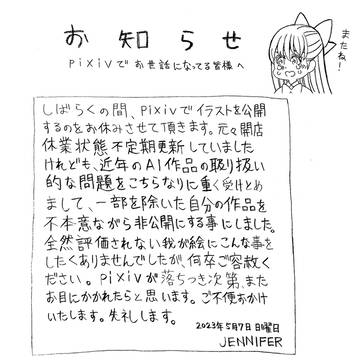 お知らせ
pixivでお世話になってる皆様へ
またね!
しばらくの間、pixivでイラストを公開
するのをお休みさせて頂きます。元々開店
休業状態不定期更新していました
けれども、近年のAI作品の取り扱い
的な問題をこちらなりに重く受けとめ
まして、一部を除いた自分の作品を
不本意ながら非公開にする事にしました。
全然評価されない我が絵にこんな事を
したくありませんでしたが、何卒ご容赦く
ださい。pixivが落ちつき次第、また
お目にかかれたらと思います。ご不便おかけ
いたします。失礼します。
2023年5月7日 日曜日
JENNIFER